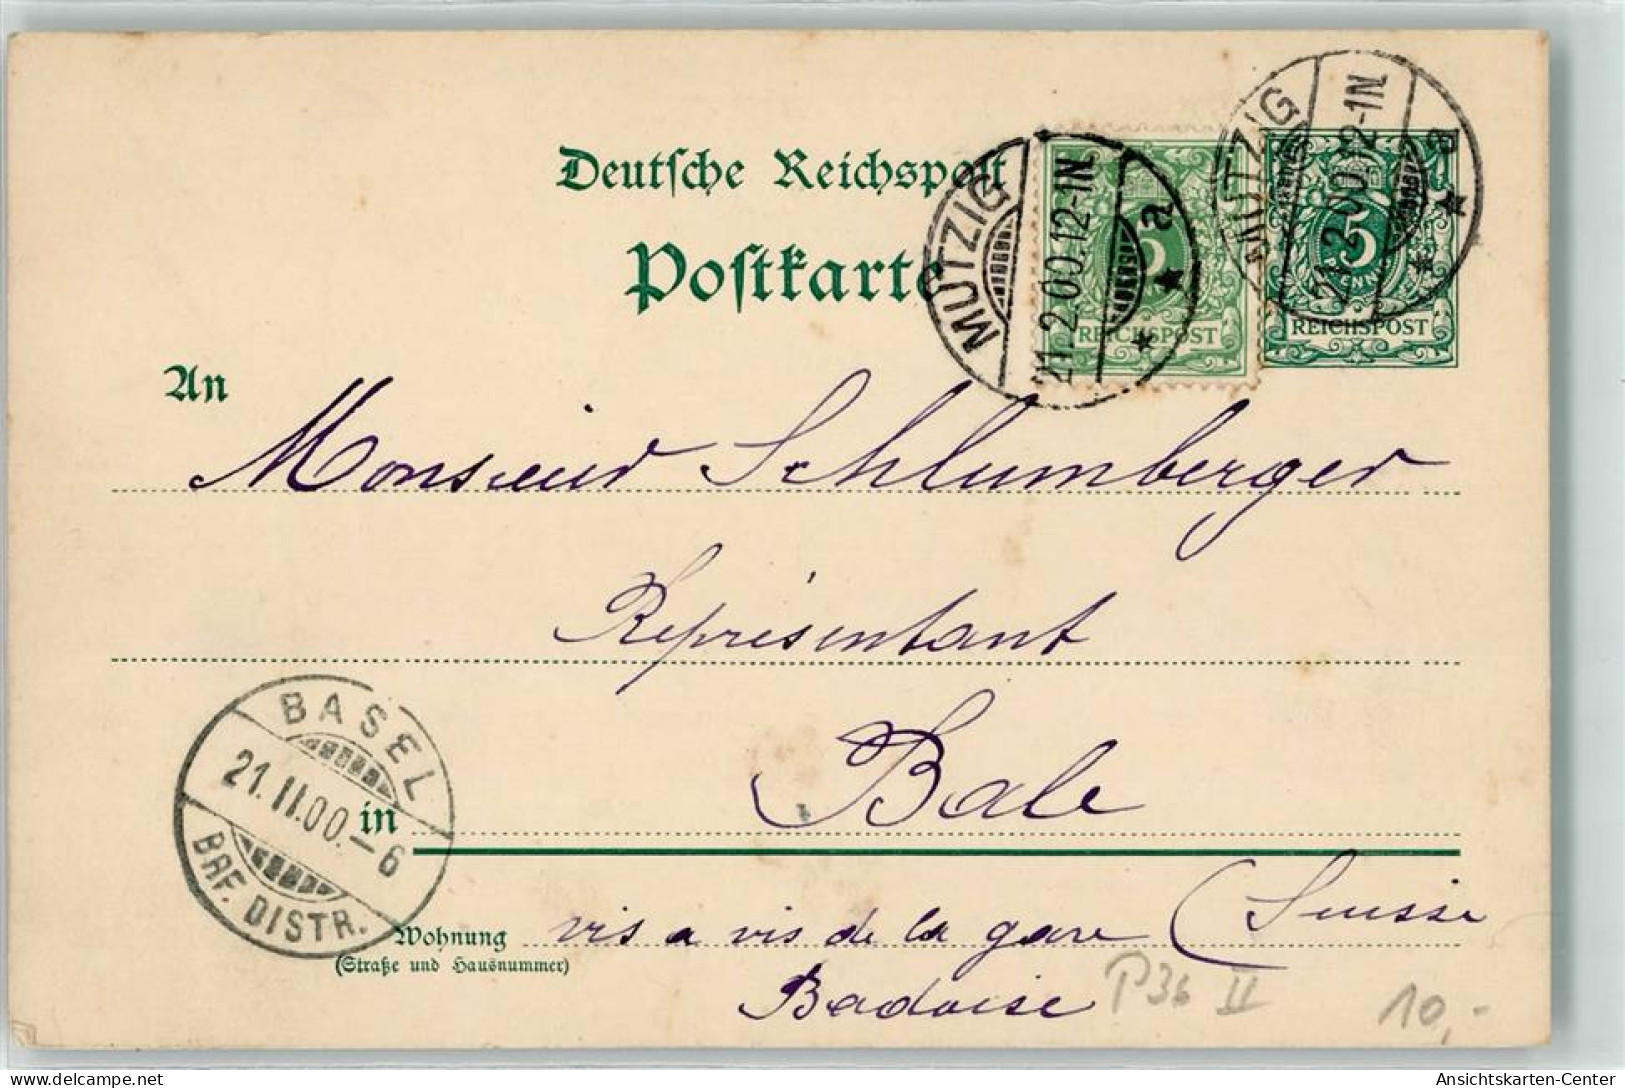 Deutsche Reichspost
Postkarte
MUTZIG
21.2.00.12-1N.
a
5
REICHSPOST
MUTZIG
21.2.00.12-1N.
a
5
REICHSPOST
An
Monsieur Schlumberger
Représentant
in Bale
BASEL
21.II.00.–6
BRF. DISTR.
Wohnung vis a vis de la gare (Suisse
(Straße und Hausnummer)
Badoise
P36 II
10,-
Ansichtskarten-Center